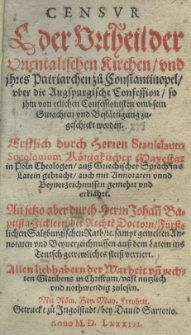 CENSVR
Oder Vrtheil der
Orientalischen Kirchen/ vnd
jhres Patriarchen zů Constantinopel/
vber die Augspurgische Confession/ so
ihm von etlichen Confessionisten vmb sein
Gutachten vnd Bestättigung zugeschickt
worden.
Erstlich durch Herren Stanislaum
Socolouium Königklicher Mayestat
in Poln Theologen/ auß Griechischer Sprach ins
Latein gebracht/ auch mit Annotaten vnnd
Beyuerzeichnussen gemehrt vnd
erklärt.
An jetzo aber durch Herrn Johañ Baptista
Fickler der Rechte Doctorn/ Fürstlichen
Saltzburgischen Rath/ sampt gemelten Annotaten
vnd Beyuerzeichnussen auß dem Latein ins
Teutsch getrewliches fleiß verticrt.
Allen liebhabern der Warheit vñ rechten
Glauben in Christum/ vast nutzlich
vnd nothwendig zulesen.
Mit Röm. Key. May. Freiheit.
Getruckt zů Ingolstadt/ bey Dauid Sartorio.
ANNO M.D. LXXXIII.